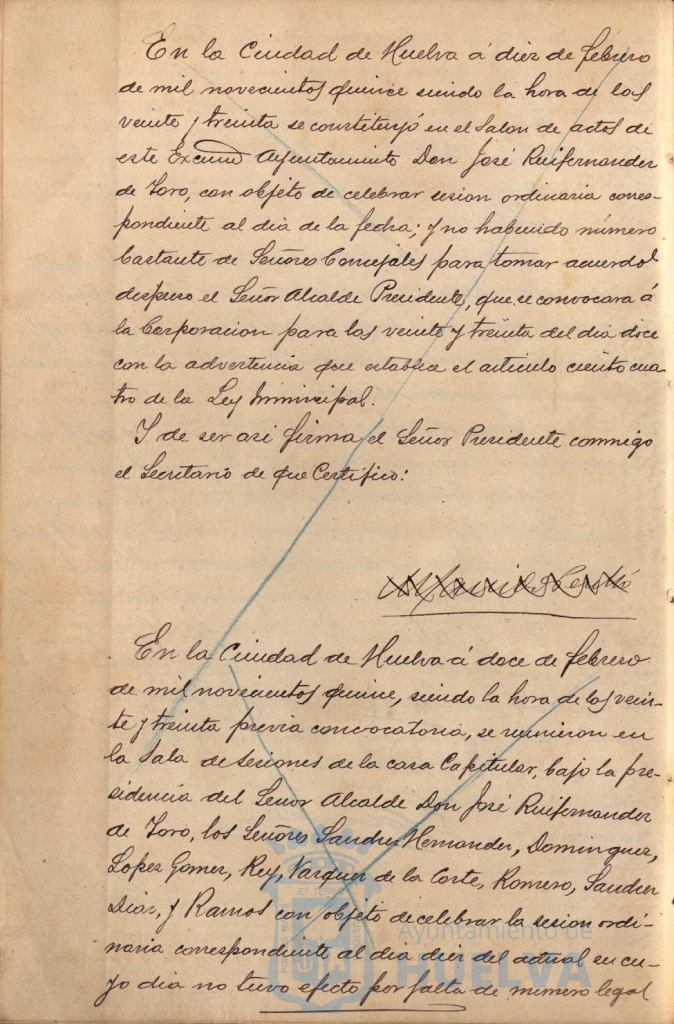 En la Ciudad de Huelva á diez de febrero
de mil novecientos quince siendo la hora de las
veinte y treinta se constituyó en el Salon de actos de
este Excmo Ayuntamiento Don José Ruifernandez
de Toro, con objeto de celebrar sesion ordinaria corres-
pondiente al dia de la fecha; y no habiendo número
bastante de Señores Concejales para tomar acuerdos
dispuso el Señor Alcalde Presidente, que se convocara á
la Corporacion para las veinte y treinta del dia doce
con la advertencia que establece el articulo ciento cua-
tro de la Ley Municipal.
Y de ser asi firma el Señor Presidente conmigo
el Secretario de que Certifico:
En la Ciudad de Huelva á doce de febrero
de mil novecientos quince, siendo la hora de las vein-
te y treinta previa convocatoria, se reunieron en
la Sala de sesiones de la casa Capitular, bajo la pre-
sidencia del Señor Alcalde Don José Ruifernandez
de Toro, los Señores Sanchez Hernandez, Dominguez,
Lopez Gomez, Rey, Vazquez de la Corte, Romero, Sanchez
Diaz, y Ramos con objeto de celebrar la sesion ordi-
naria correspondiente al dia diez del actual en cu-
yo dia no tuvo efecto por falta de número legal
Ayuntamiento de
HUELVA